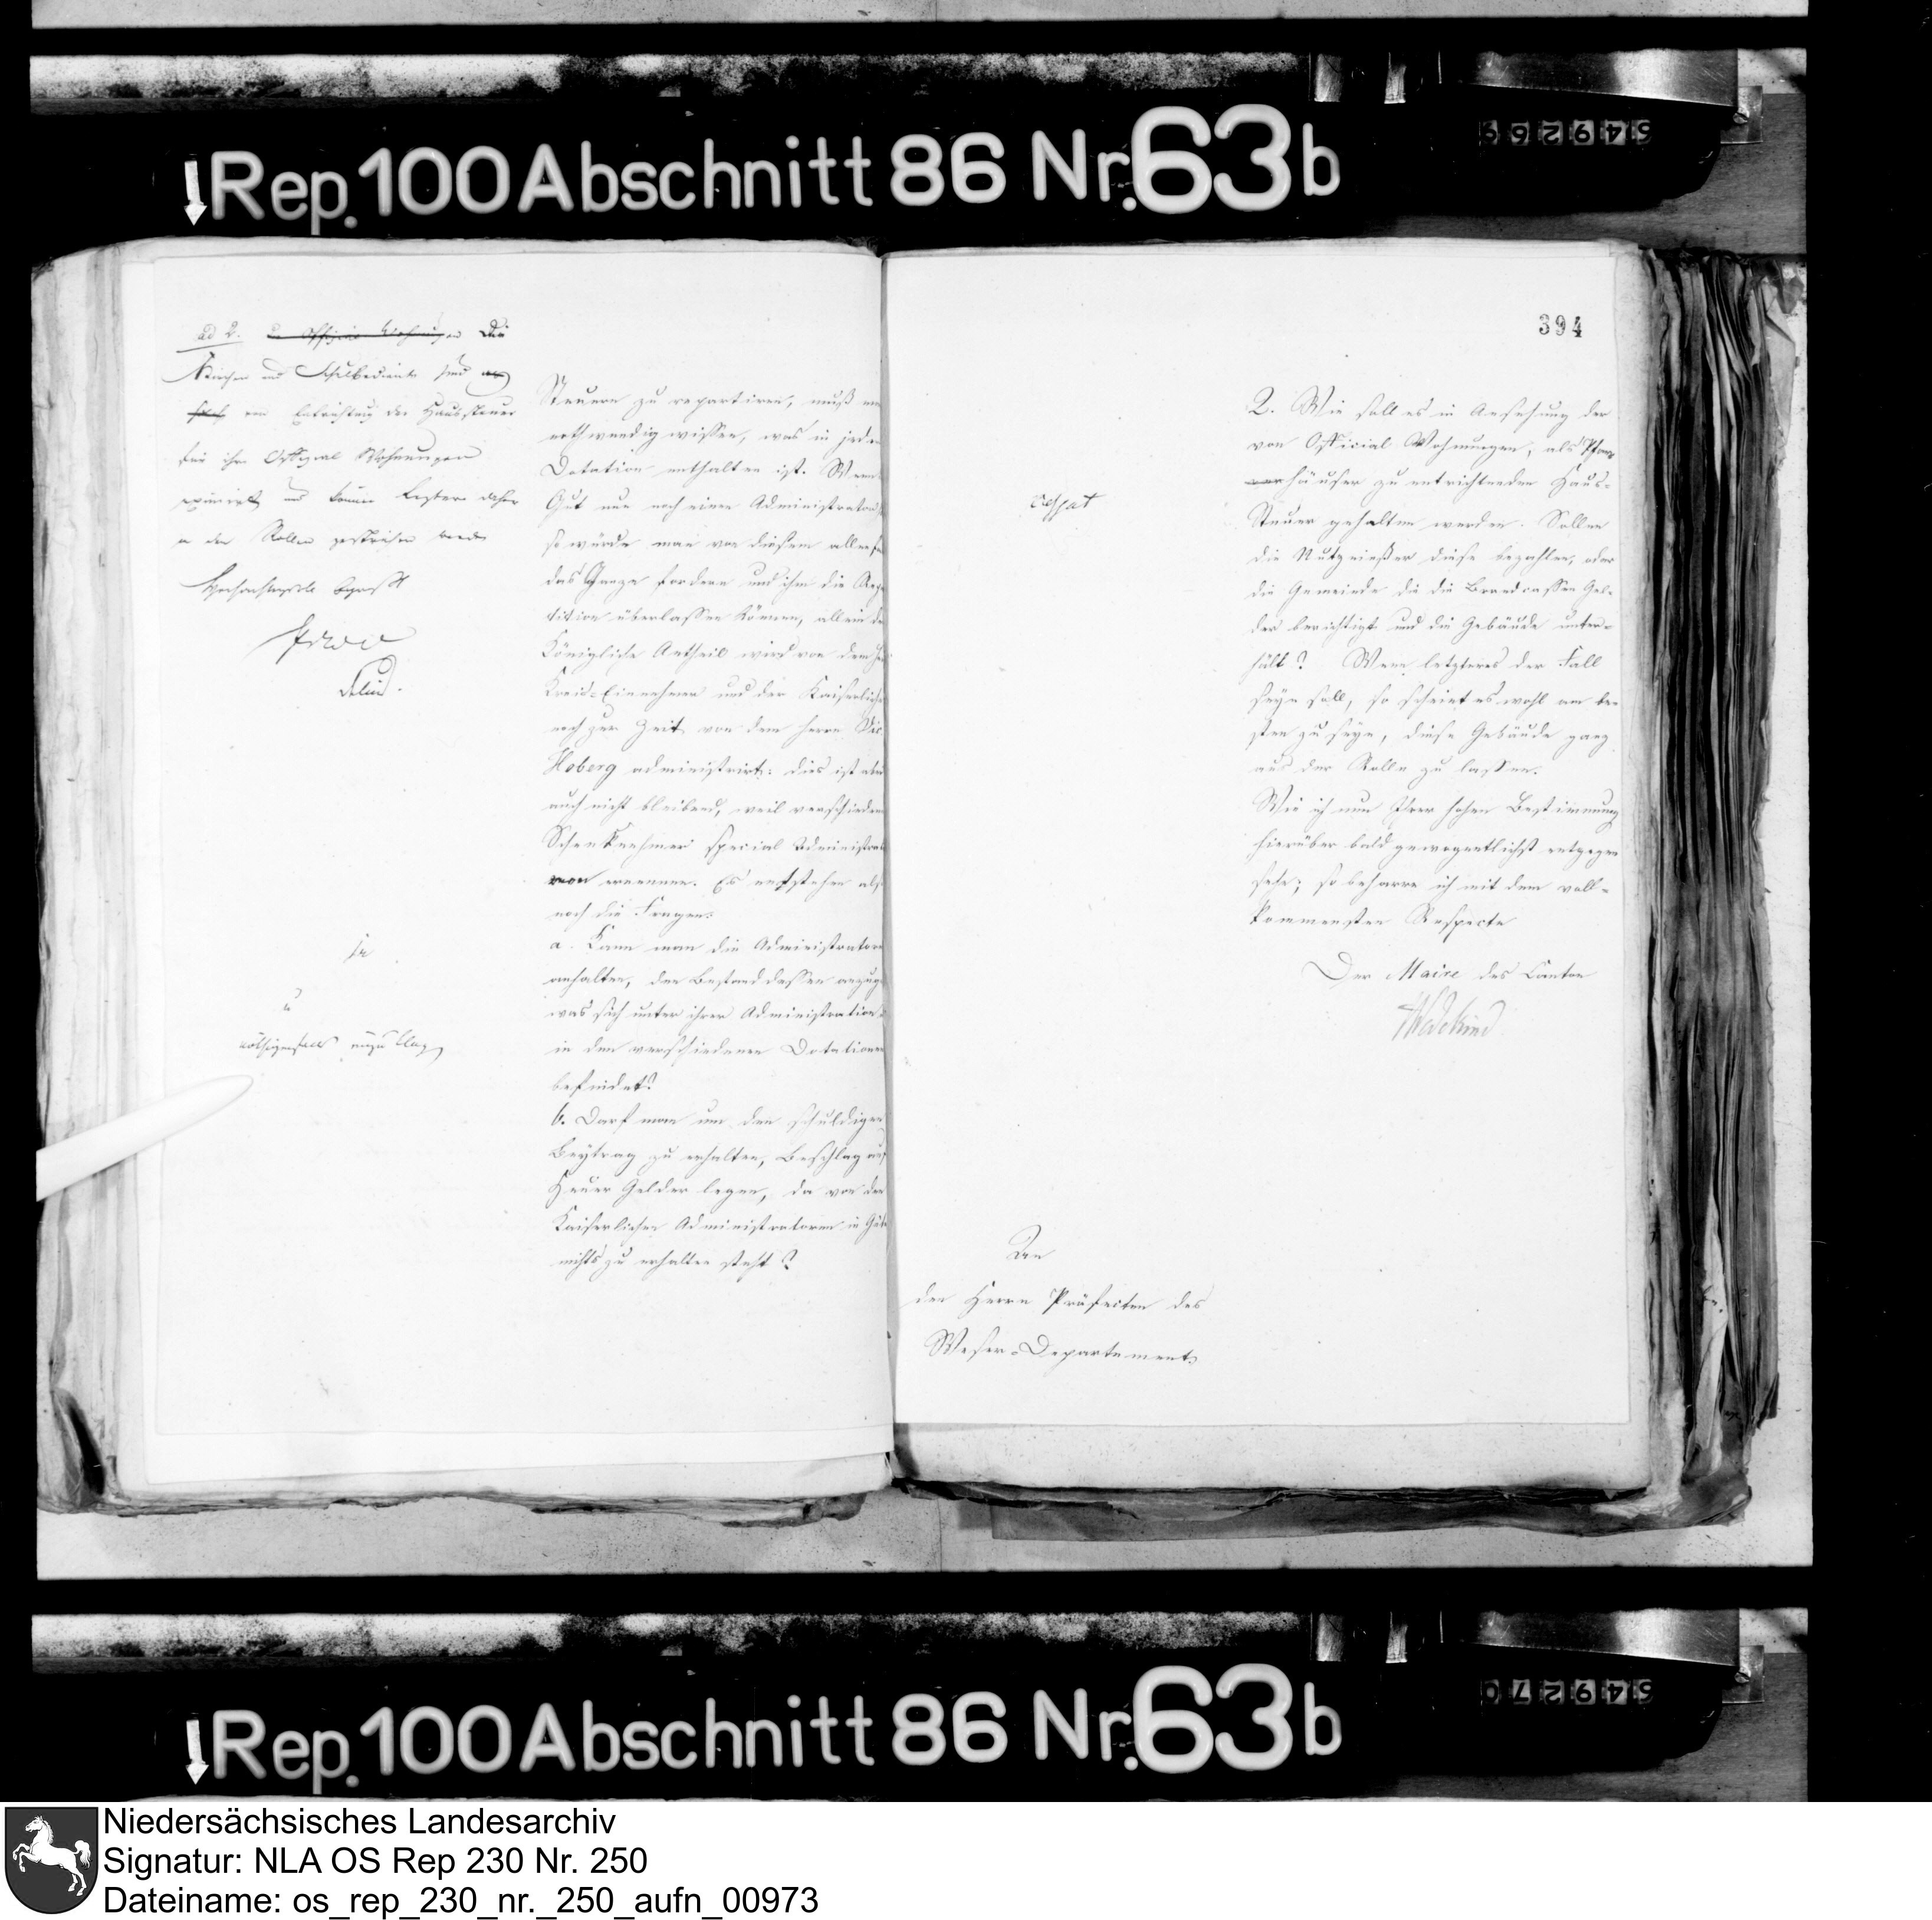 Rep. 100 Abschnitt 86 Nr. 63 b
549269
ad 2. die Offizial Wohnungen Die
Kirchen und Schulbediente sind
von Entrichtung der Haussteuer
für ihre Official Wohnungen
eximirt und können letztere daher
in den Rollen gestrichen werden
Steuern zu repartiren, muß man
nothwendig wissen, was in jeder
Dotation enthalten ist. Wenn
Gut nur noch einen Administrator
so würde man von diesem allenfa
das Ganze fordern und ihm die Repa
tition überlassen können, allein der
Königliche Antheil wird von dem H
Kreis-Einnehmer und der Kaiserliche
noch zur Zeit von dem Herrn
Hoberg administrirt: dies ist aber
auch nicht bleibend, weil verschiedene
Schenknehmer special Administrat
oren ernennen. Es entstehen also
noch die Fragen:
a. Kann man die Administratoren
anhalten, den Bestand dessen anzuge
was sich unter ihrer Administration
in den verschiedenen Dotationen
befindet?
b. Darf man um den schuldigen
Beytrag zu erhalten, Beschlag auf
Heuer Gelder legen, da von den
Kaiserlichen Administratoren in Güte
nichts zu erhalten steht?
ja
394
cessat
2. Wie soll es in Ansehung der
von Official Wohnungen, als Pfarr
häuser zu entrichtenden Haus-
Steuer gehalten werden. Sollen
die Nutznießer diese bezahlen, oder
die Gemeinde die die Brandcassen Gel-
der berichtigt und die Gebäude unter-
hält? Wenn letzteres der Fall
seyn soll, so scheint es wohl am be-
sten zu seyn, diese Gebäude ganz
aus der Rolle zu lassen.
Wie ich nun Ihrer hohen Bestimmung
hierüber bald gewogentlichst entgegen
sehe; so beharre ich mit dem voll-
kommensten Respecte
Der Maire des Canton
Wedekind
An
den Herrn Präfecten des
Weser-Departements
Rep. 100 Abschnitt 86 Nr. 63 b
549270
Niedersächsisches Landesarchiv
Signatur: NLA OS Rep 230 Nr. 250
Dateiname: os_rep_230_nr._250_aufn_00973